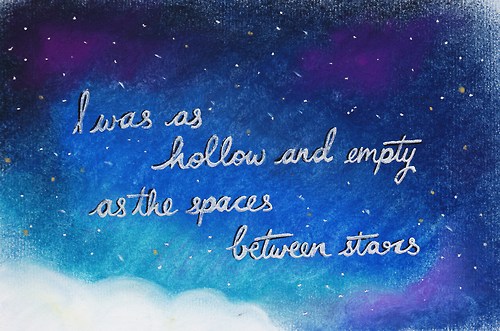 I was as
hollow and empty
as the spaces
between stars